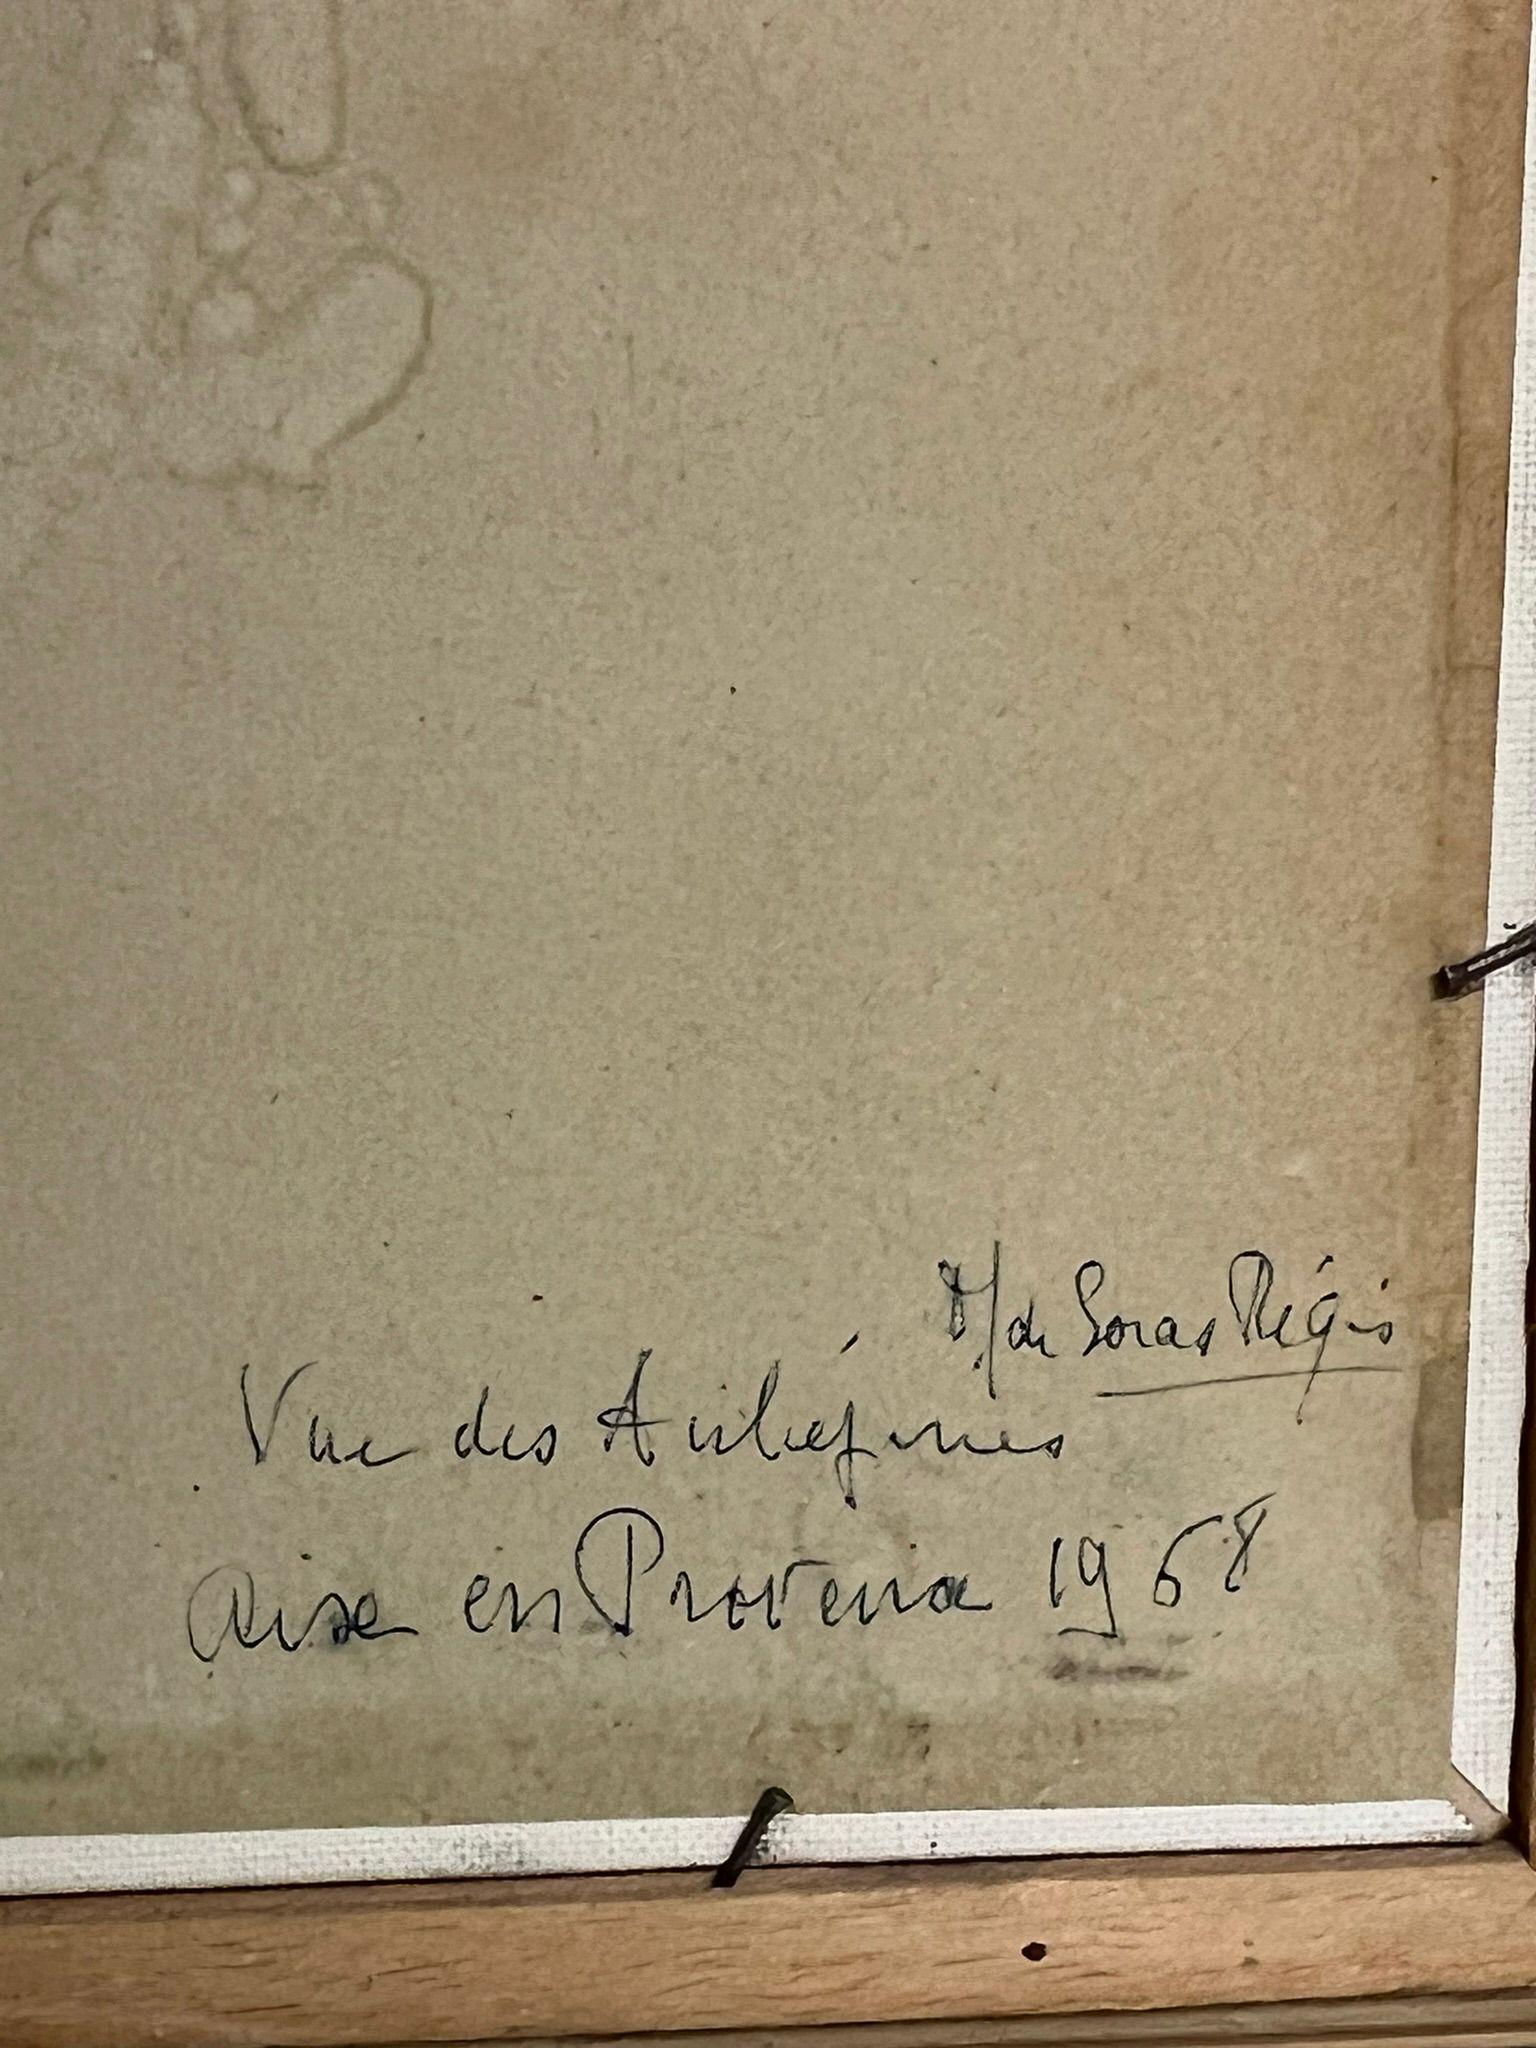 M/de Soras Régis
Vue des Aubépines
Aix en Provence 1968